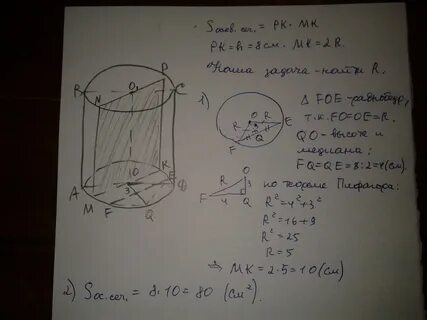 Sосев. сеч. = PK · MK
PK = h = 8 см. MK = 2R.
Наша задача - найти R.
P
R O₁ C
N
K
A 10 E D
M 3
F Q
1)
O
R R E
4 4
F Q
Δ FOE - равнобедр.,
т.к. FO = OE = R.
QO - высота и
медиана:
FQ = QE = 8:2 = 4 (см).
O
R 3
F 4 Q
по теореме Пифагора:
R² = 4² + 3²
R² = 16 + 9
R² = 25
R = 5
⇒ MK = 2 · 5 = 10 (см)
2) Sос. сеч. = 8 · 10 = 80 (см²).